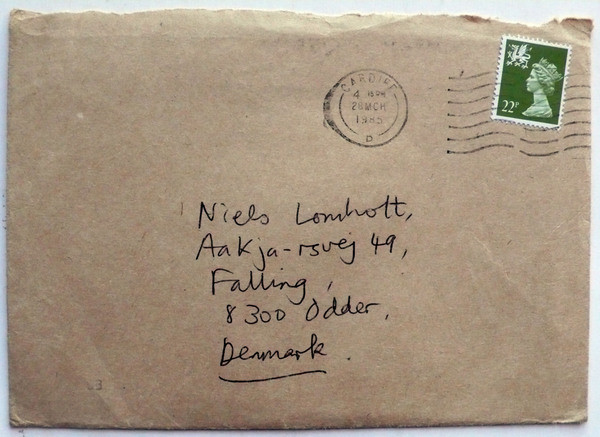 CARDIFF
4
28 MCH
1985
D
22P
Niels Lomholt,
Aakja-rsvej 49,
Falling,
8300 Odder,
Denmark.